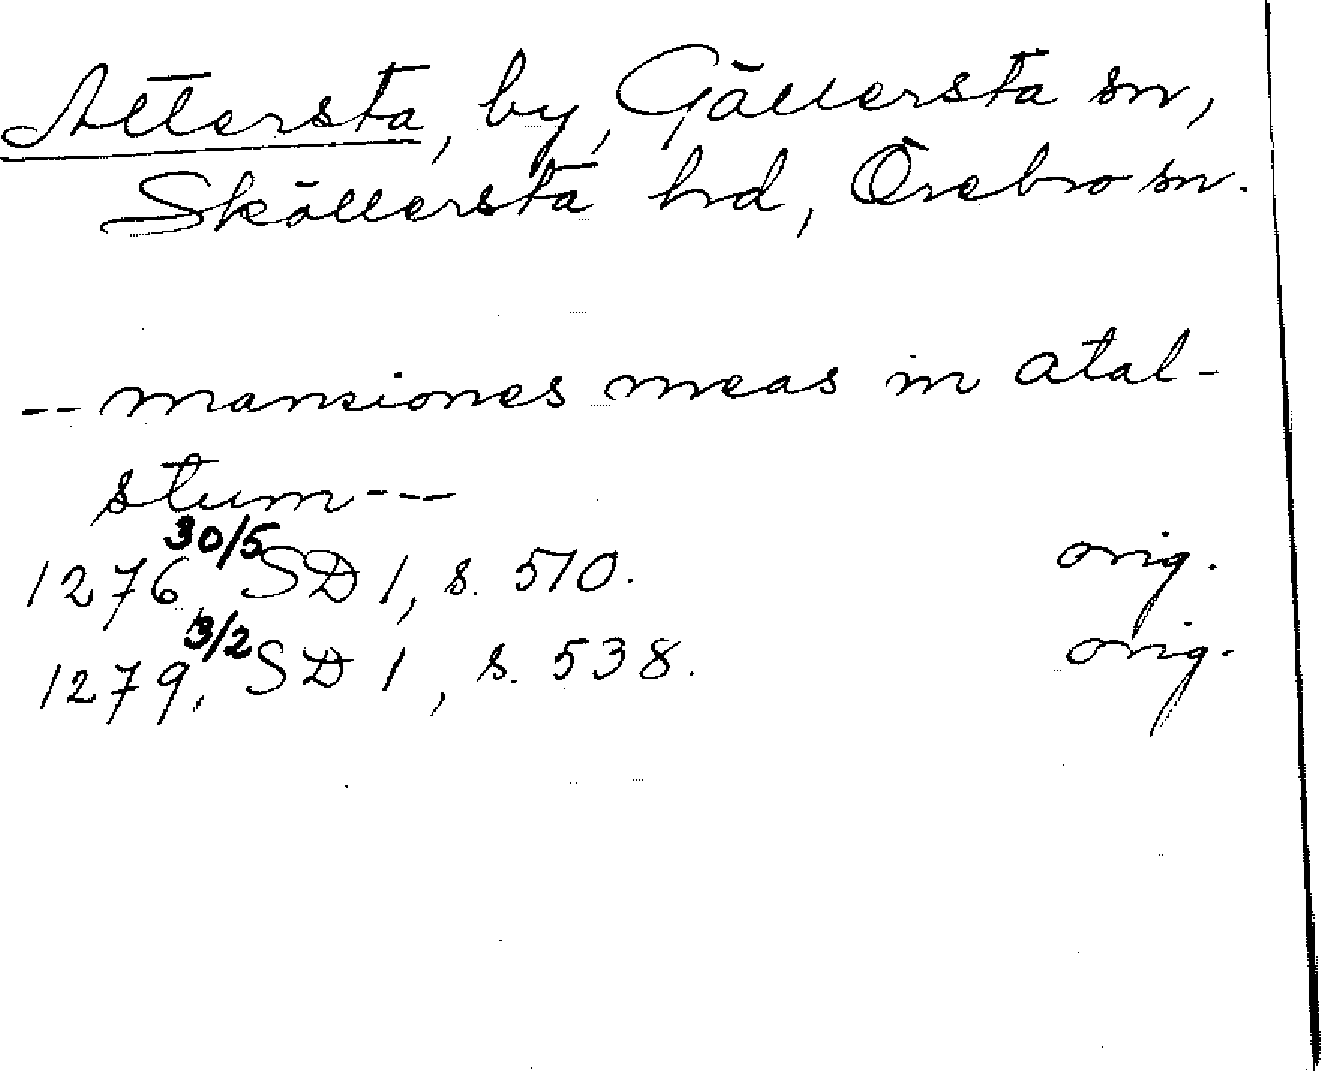 Attersta, by, Gällersta sn,
Sköllersta hd, Örebro sn.
-- mansiones meas in atal-
stum ---
1276 30/5 SD 1, s. 510. orig.
1279, 3/2 SD 1, s. 538. orig.